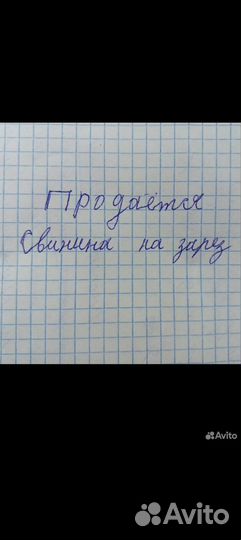 Продаётся
Свинина на зарез
Avito
Avito